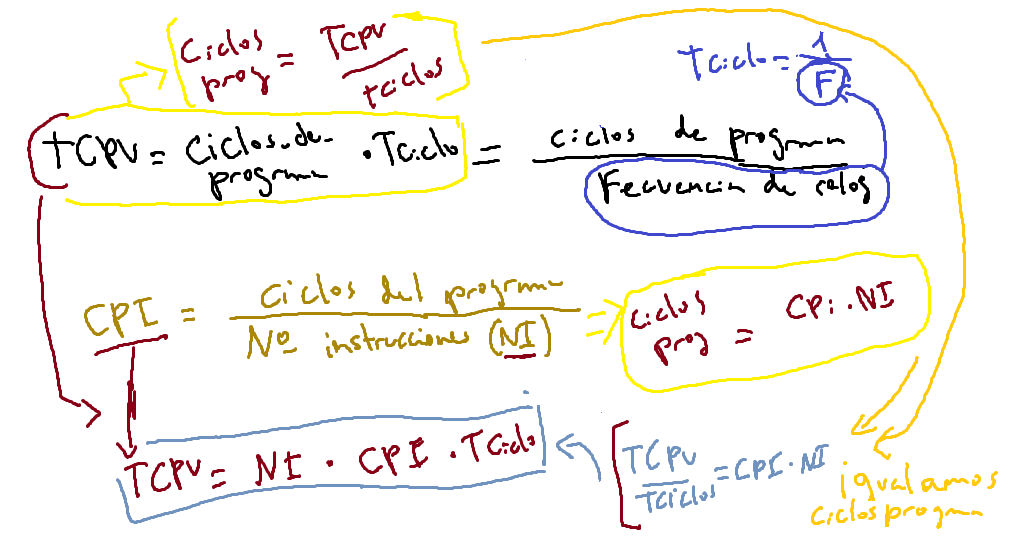 Ciclos prog = TCPU / tciclos
Tciclo = 1 / F
TCPU = Ciclos de programa · Tciclo = ciclos de programa / Fecuencia de reloj
CPI = Ciclos del programa / Nº instrucciones (NI) => ciclos prog = CPi · NI
TCPU = NI · CPI · TCiclo
TCPU / TCiclos = CPI · NI
igualamos
ciclos programa